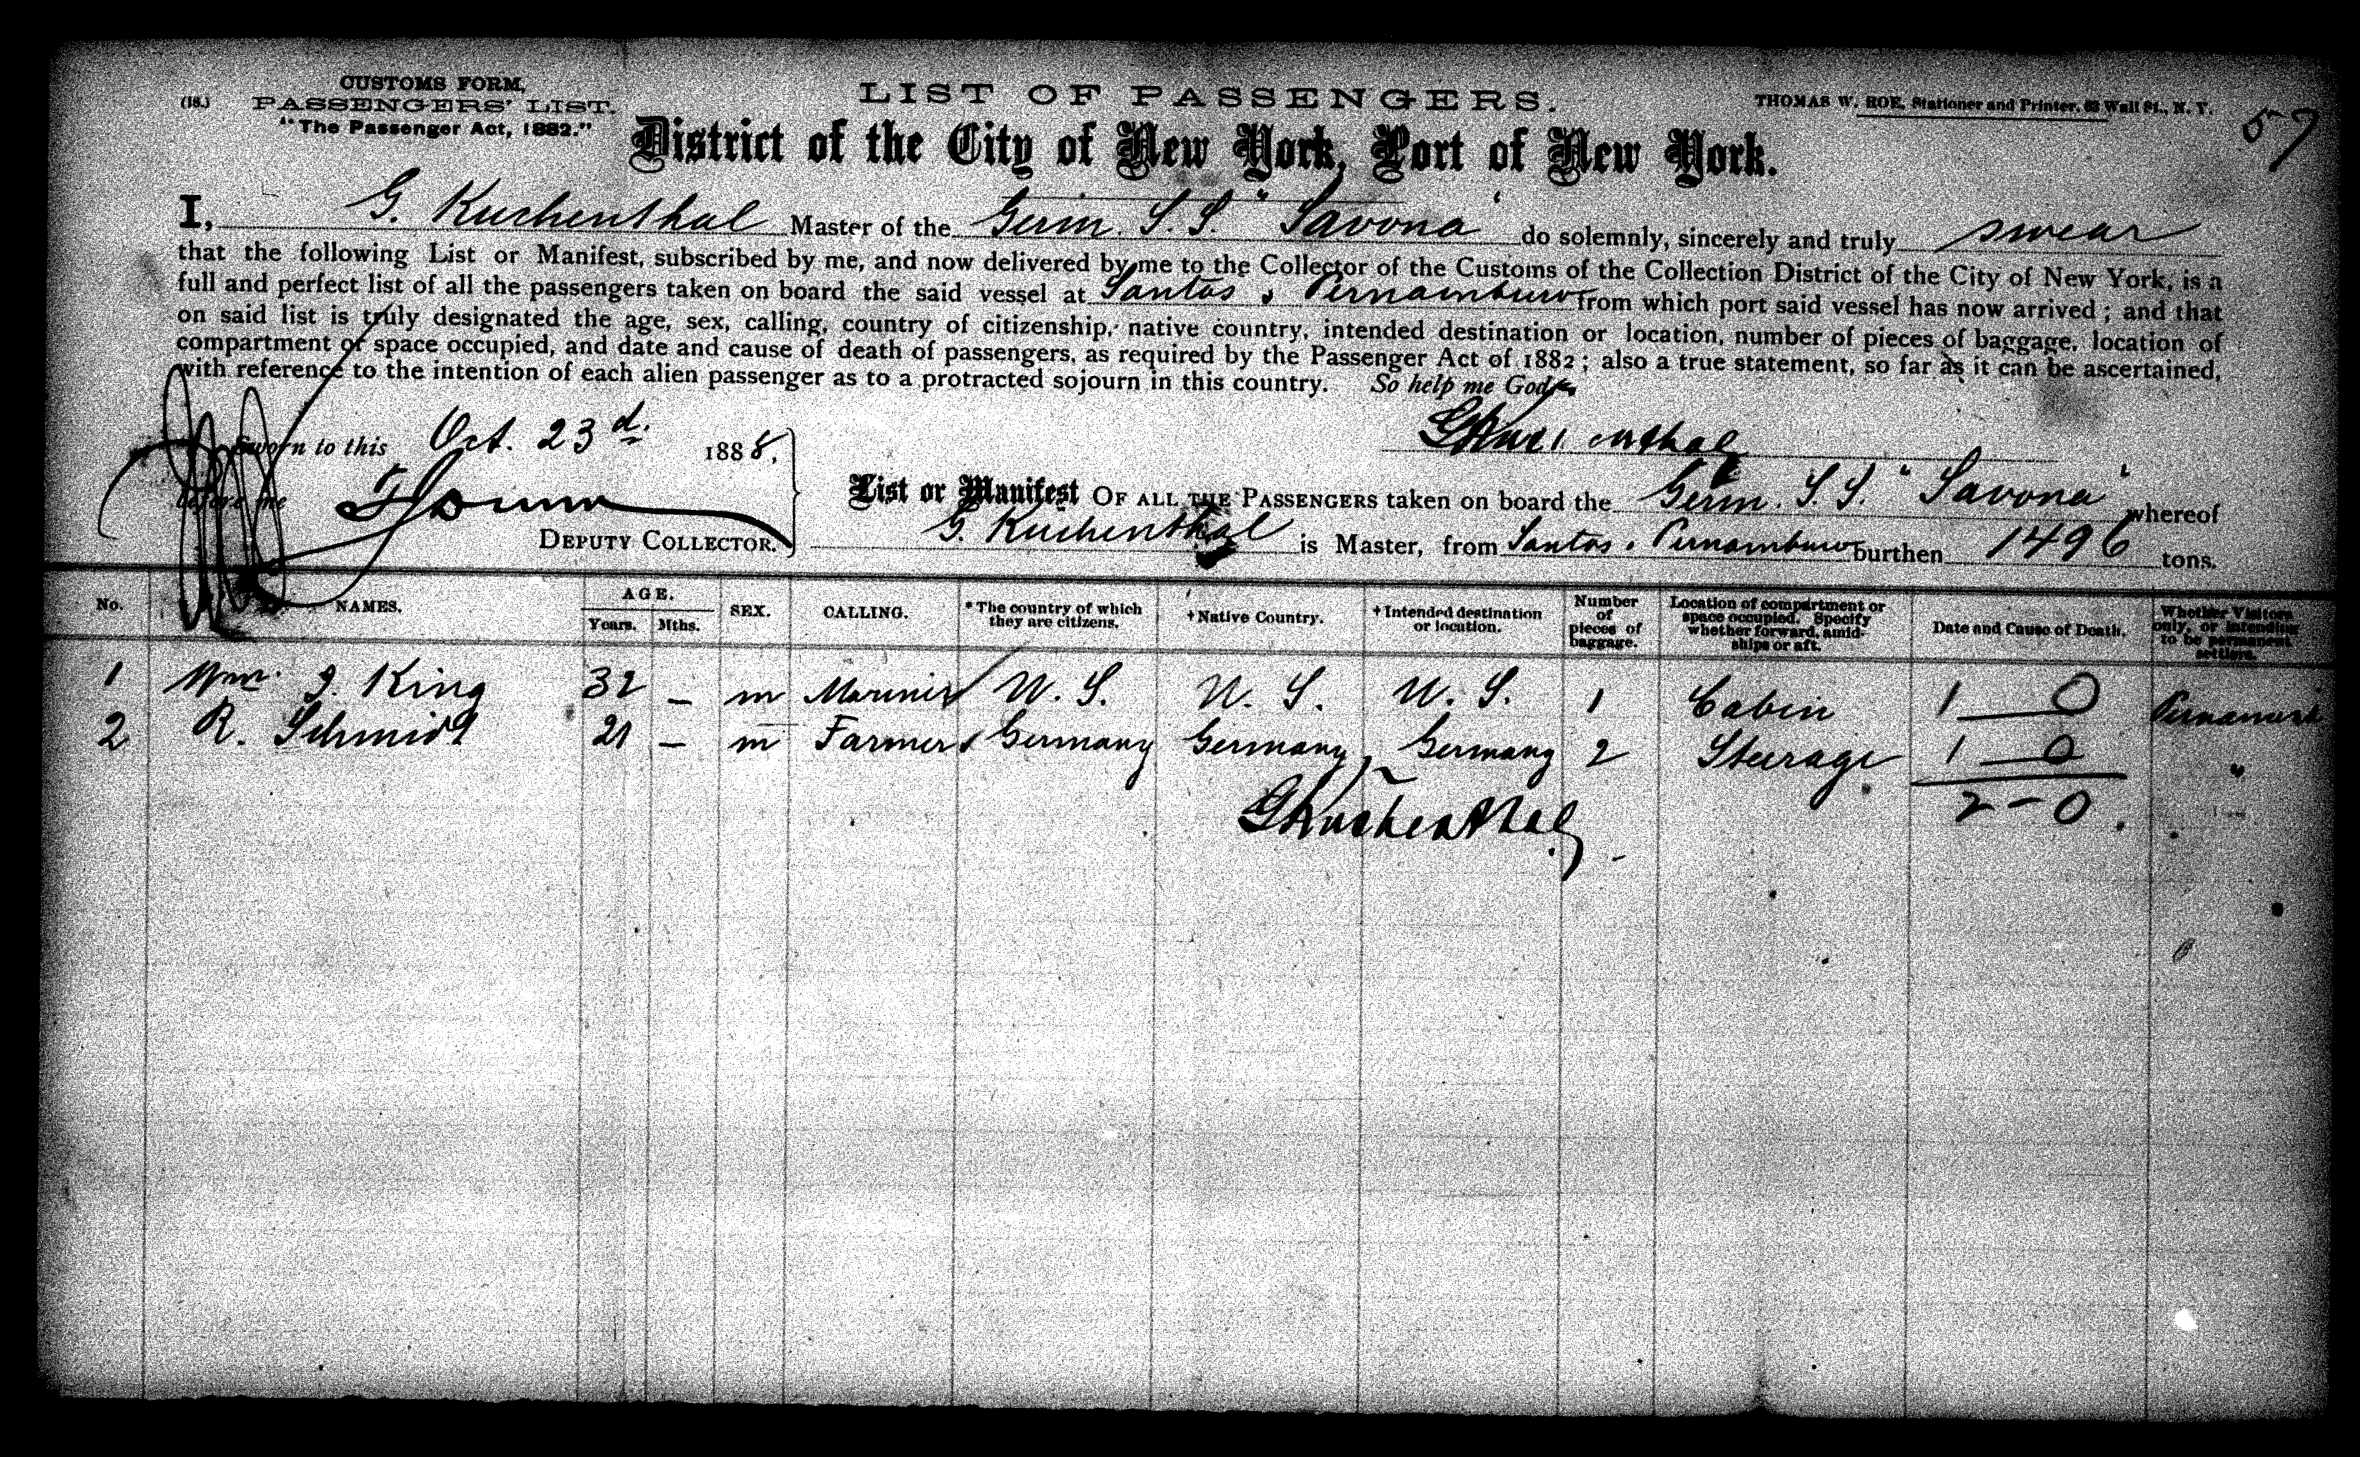 CUSTOMS FORM,
(18.) PASSENGERS' LIST.
"The Passenger Act, 1882."
LIST OF PASSENGERS.
THOMAS W. ROE, Stationer and Printer, 62 Wall St., N. Y.
57
District of the City of New York, Port of New York.
I, G. Kuchenthal Master of the Germ. S. S. "Savona" do solemnly, sincerely and truly swear
that the following List or Manifest, subscribed by me, and now delivered by me to the Collector of the Customs of the Collection District of the City of New York, is a
full and perfect list of all the passengers taken on board the said vessel at Santos & Pernambuco from which port said vessel has now arrived; and that
on said list is truly designated the age, sex, calling, country of citizenship, native country, intended destination or location, number of pieces of baggage, location of
compartment or space occupied, and date and cause of death of passengers, as required by the Passenger Act of 1882; also a true statement, so far as it can be ascertained,
with reference to the intention of each alien passenger as to a protracted sojourn in this country. So help me God.
Sworn to this Oct. 23d. 1888,
GKuchenthal
before me
DEPUTY COLLECTOR.
List or Manifest OF ALL THE PASSENGERS taken on board the Germ. S. S. "Savona" whereof
G. Kuchenthal is Master, from Santos & Pernambuco burthen 1496 tons.
No. NAMES. AGE. Years. Mths. SEX. CALLING. *The country of which they are citizens. †Native Country. †Intended destination or location. Number of pieces of baggage. Location of compartment or space occupied. Specify whether forward, amidships or aft. Date and Cause of Death. Whether Visitors only, or intending to be permanent settlers.
1 Wm. J. King 32 – m Mariner U. S. U. S. U. S. 1 Cabin 1 — 0
2 R. Schmidt 21 – m Farmer Germany Germany Germany 2 Steerage 1 — 0 "
GKuchenthal
2 – 0